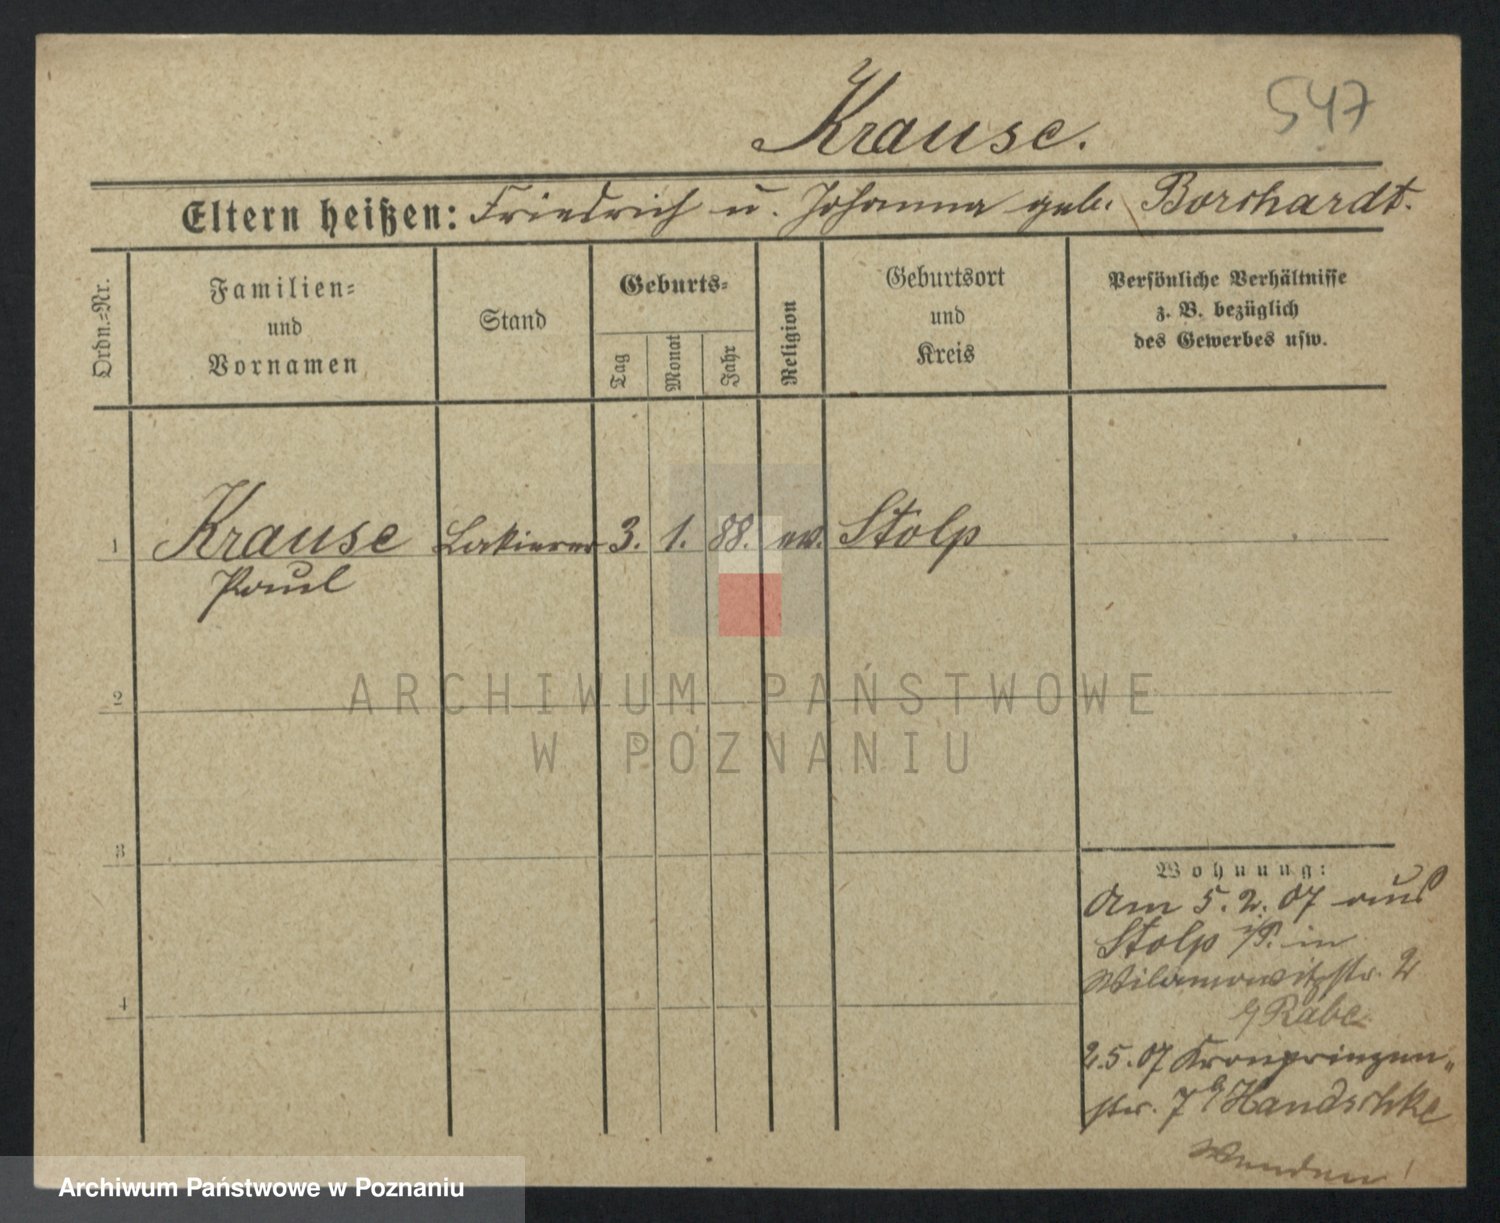 547
Krause.
Eltern heißen: Friedrich u. Johanna geb. Borchardt.
Ordn.=Nr.
Familien=
und
Vornamen
Stand
Geburts=
Tag
Monat
Jahr
Religion
Geburtsort
und
Kreis
Persönliche Verhältnisse
z. B. bezüglich
des Gewerbes usw.
1 Krause Lakierer 3. 1. 88. ev. Stolp
Paul
2
3
4
Wohnung:
Am 5.2.07 aus
Stolp i/P. in
Wilamowitzstr. 2
b/ Rabe
2.5.07 Kronprinzen=
str. 7 b/ Handschke
Wenden!
ARCHIWUM PAŃSTWOWE
W POZNANIU
Archiwum Państwowe w Poznaniu